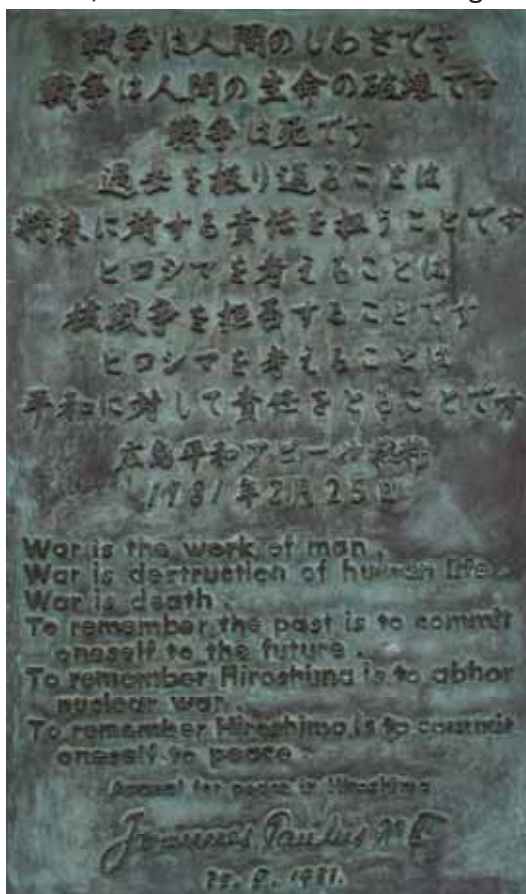 戦争は人間のしわざです
戦争は人間の生命の破壊です
戦争は死です
過去を振り返ることは
将来に対する責任を担うことです
ヒロシマを考えることは
核戦争を拒否することです
ヒロシマを考えることは
平和に対して責任をとることです
広島平和アピール
1981年2月25日
War is the work of man.
War is destruction of human life.
War is death.
To remember the past is to commit
oneself to the future.
To remember Hiroshima is to abhor
nuclear war.
To remember Hiroshima is to commit
oneself to peace.
Appeal for peace in Hiroshima
Joannes Paulus PP. II
25. 2. 1981.